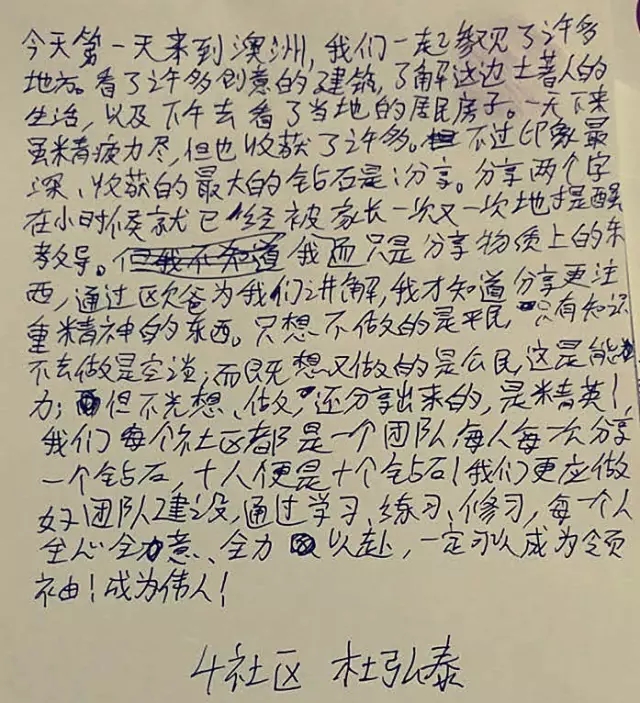 今天第一天来到澳洲，我们一起参观了许多
地方。看了许多创意的建筑，了解这边土著人的
生活，以及下午去看了当地的居民房子。一天下来
虽精疲力尽，但也收获了许多。不过印象最
深、收获的最大的钻石是：分享。分享两个字
在小时侯就已经被家长一次又一次地提醒
教导。但我不知道我而只是分享物质上的东
西，通过区欠爸为我们讲解，我才知道分享更注
重精神的东西。只想不做的是平民，只有知识
不去做是空谈；而既想又做的是公民，这是能
力；但不光想、做，还分享出来的，是精英！
我们每个社区都是一个团队，每人每次分享
一个钻石，十人便是十个钻石！我们更应做
好团队建设，通过学习、练习、修习，每一个人
全心全意、全力以赴，一定可以成为领
袖！成为伟人！
4社区 杜弘泰